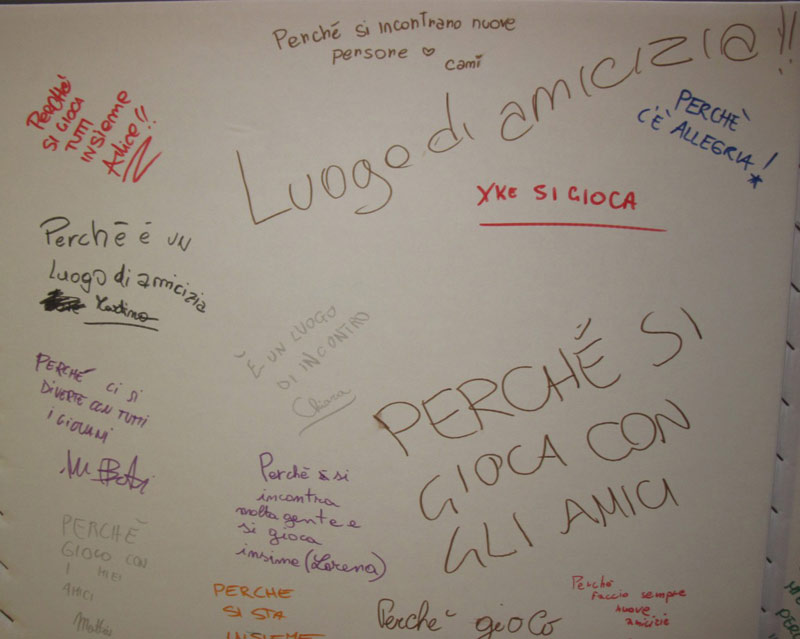 Perché si incontrano nuove
persone ♡
cami
Luogo di amicizia!!
PERCHÈ
C'È ALLEGRIA!
PERCHÉ
SI GIOCA
TUTTI
INSIEME
Alice!!
XKE SI GIOCA
Perchè è UN
Luogo di amicizia
È UN LUOGO
DI INCONTRO
Chiara
PERCHÉ SI
GIOCA CON
GLI AMICI
PERCHÉ CI SI
DIVERTE CON TUTTI
I GIOVANI
Perchè si
incontra
molta gente e
si gioca
insime (Lorena)
PERCHÈ
GIOCO CON
I MIEI
AMICI
Mattia
PERCHE
SI STA
INSIEME
Perche' gioco
Perché
faccio sempre
nuove
amicizie